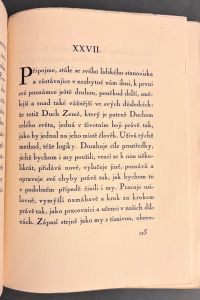 XXVII.
Připojme, stále se svého lidského stanoviska
a zůstávajíce v nezbytné nám ilusi, k první
své poznámce ještě druhou, poněkud delší, smě-
lejší a snad také vážnější ve svých důsledcích:
že totiž Duch Země, který je patrně Duchem
celého světa, jedná v životním boji právě tak,
jak by jednal na jeho místě člověk. Užívá týchž
method, téže logiky. Dosahuje cíle prostředky,
jichž bychom i my použili, vrací se k ním několi-
krát, přidává nové, vylučuje jiné, poznává a
opravuje své chyby právě tak, jak bychom to
v podobném případě činili i my. Pracuje usi-
lovně, vymýšlí namáhavě a krok za krokem
právě tak, jako pracovníci a učenci v našich díl-
nách. Zápasí stejně jako my s tísnivou, obrov-
115